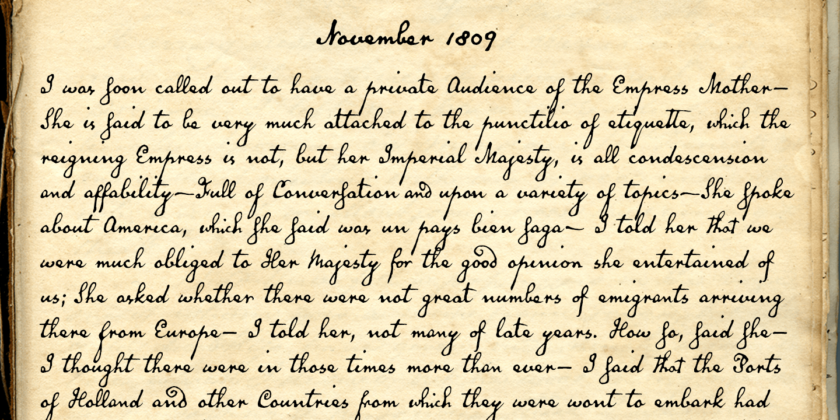 November 1809
I was soon called out to have a private Audience of the Empress Mother—
She is said to be very much attached to the punctilio of etiquette, which the
reigning Empress is not, but her Imperial Majesty, is all condescension
and affability—Full of Conversation and upon a variety of topics—She spoke
about America, which she said was un pays bien saga— I told her that we
were much obliged to Her Majesty for the good opinion she entertained of
us; She asked whether there were not great numbers of emigrants arriving
there from Europe— I told her, not many of late years. How so, said she—
I thought there were in those times more than ever— I said that the Ports
of Holland and other Countries from which they were wont to embark had